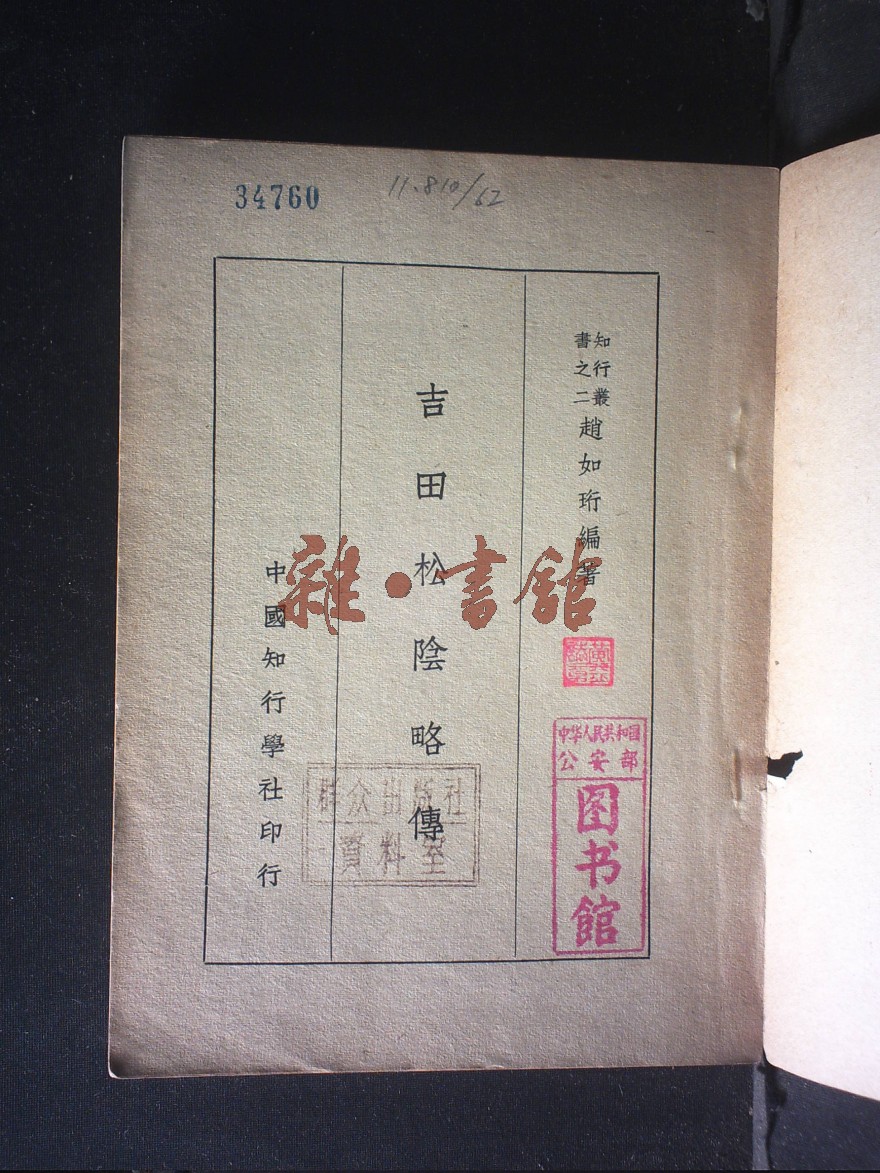 34760
11.810/62
知行叢
書之二
趙如珩編著
吉田松陰略傳
中國知行學社印行
雜·書館
中华人民共和国
公安部
图书馆
群众出版社
資料室